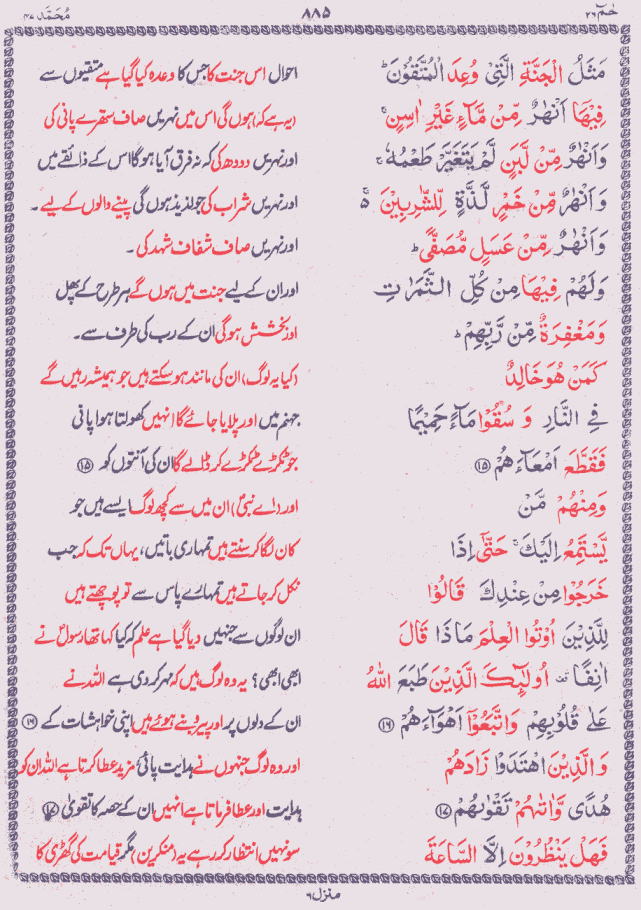 حٰمٓ ۲۶ ۸۸۵ مُحَمَّد ۴۷
مَثَلُ الْجَنَّةِ الَّتِیْ وُعِدَ الْمُتَّقُوْنَ ؕ احوال اس جنت کا جس کا وعدہ کیا گیا ہے متقیوں سے
فِیْهَاۤ اَنْهٰرٌ مِّنْ مَّآءٍ غَیْرِ اٰسِنٍ ۚ (یہ ہے کہ) ہوں گی اس میں نہریں صاف ستھرے پانی کی
وَ اَنْهٰرٌ مِّنْ لَّبَنٍ لَّمْ یَتَغَیَّرْ طَعْمُهٗ ۚ اور نہریں دودھ کی کہ نہ فرق آیا ہوگا اس کے ذائقے میں
وَ اَنْهٰرٌ مِّنْ خَمْرٍ لَّذَّةٍ لِّلشّٰرِبِیْنَ ۚ۬ اور نہریں شراب کی جو لذیذ ہوں گی پینے والوں کے لیے ۔
وَ اَنْهٰرٌ مِّنْ عَسَلٍ مُّصَفًّی ؕ اور نہریں صاف شفاف شہد کی ۔
وَ لَهُمْ فِیْهَا مِنْ كُلِّ الثَّمَرٰتِ اور ان کے لیے جنت میں ہوں گے ہر طرح کے پھل
وَ مَغْفِرَةٌ مِّنْ رَّبِّهِمْ ؕ اور بخشش ہوگی ان کے رب کی طرف سے ۔
كَمَنْ هُوَ خَالِدٌ (کیا یہ لوگ) ان کی مانند ہوسکتے ہیں جو ہمیشہ رہیں گے
فِی النَّارِ وَ سُقُوْا مَآءً حَمِیْمًا جہنم میں اور پلایا جائے گا انہیں کھولتا ہوا پانی
فَقَطَّعَ اَمْعَآءَهُمْ ﴿۱۵﴾ جو ٹکڑے ٹکڑے کر ڈالے گا ان کی آنتوں کو ﴿۱۵﴾
وَ مِنْهُمْ مَّنْ اور (اے نبیؐ) ان میں سے کچھ لوگ ایسے ہیں جو
یَّسْتَمِعُ اِلَیْكَ ۚ حَتّٰۤی اِذَا کان لگا کر سنتے ہیں تمہاری باتیں، یہاں تک کہ جب
خَرَجُوْا مِنْ عِنْدِكَ قَالُوْا نکل کر جاتے ہیں تمہارے پاس سے تو پوچھتے ہیں
لِلَّذِیْنَ اُوْتُوا الْعِلْمَ مَاذَا قَالَ ان لوگوں سے جنہیں دیا گیا ہے علم کہ کیا کہا تھا رسولؐ نے
اٰنِفًا ۫ اُولٰٓئِكَ الَّذِیْنَ طَبَعَ اللّٰهُ ابھی ابھی؟ یہ وہ لوگ ہیں کہ مہر کردی ہے اللہ نے
عَلٰی قُلُوْبِهِمْ وَ اتَّبَعُوْۤا اَهْوَآءَهُمْ ﴿۱۶﴾ ان کے دلوں پر اور پیرو بنے ہوئے ہیں اپنی خواہشات کے ﴿۱۶﴾
وَ الَّذِیْنَ اهْتَدَوْا زَادَهُمْ اور وہ لوگ جنہوں نے ہدایت پائی، مزید عطا کرتا ہے اللہ ان کو
هُدًی وَّ اٰتٰىهُمْ تَقْوٰىهُمْ ﴿۱۷﴾ ہدایت اور عطا فرماتا ہے انہیں ان کے حصہ کا تقویٰ ﴿۱۷﴾
فَهَلْ یَنْظُرُوْنَ اِلَّا السَّاعَةَ سو نہیں انتظار کر رہے یہ (منکرین) مگر قیامت کی گھڑی کا
منزل ۶